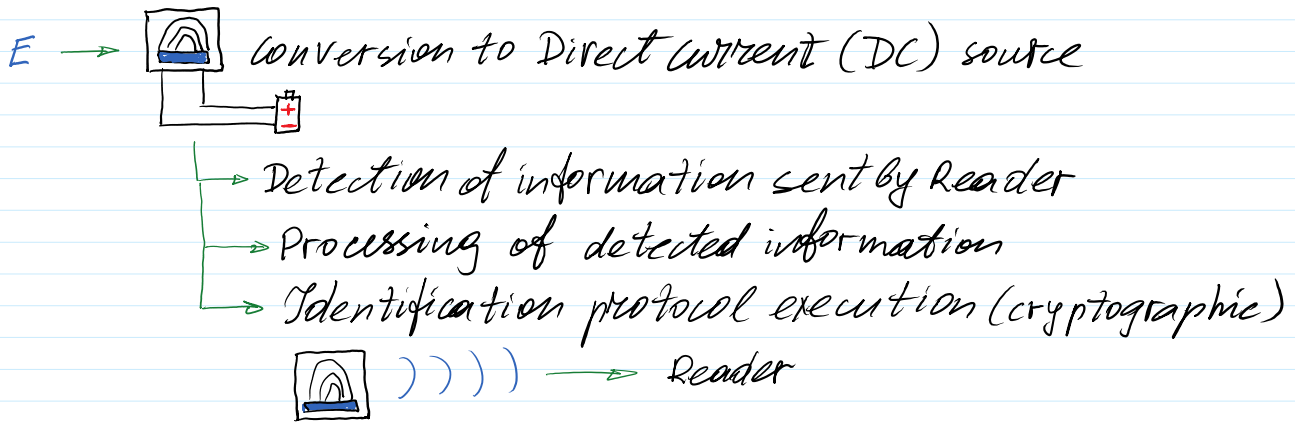 E → conversion to Direct Current (DC) source
+
-
Detection of information sent by Reader
Processing of detected information
Identification protocol execution (cryptographic)
))))  → Reader